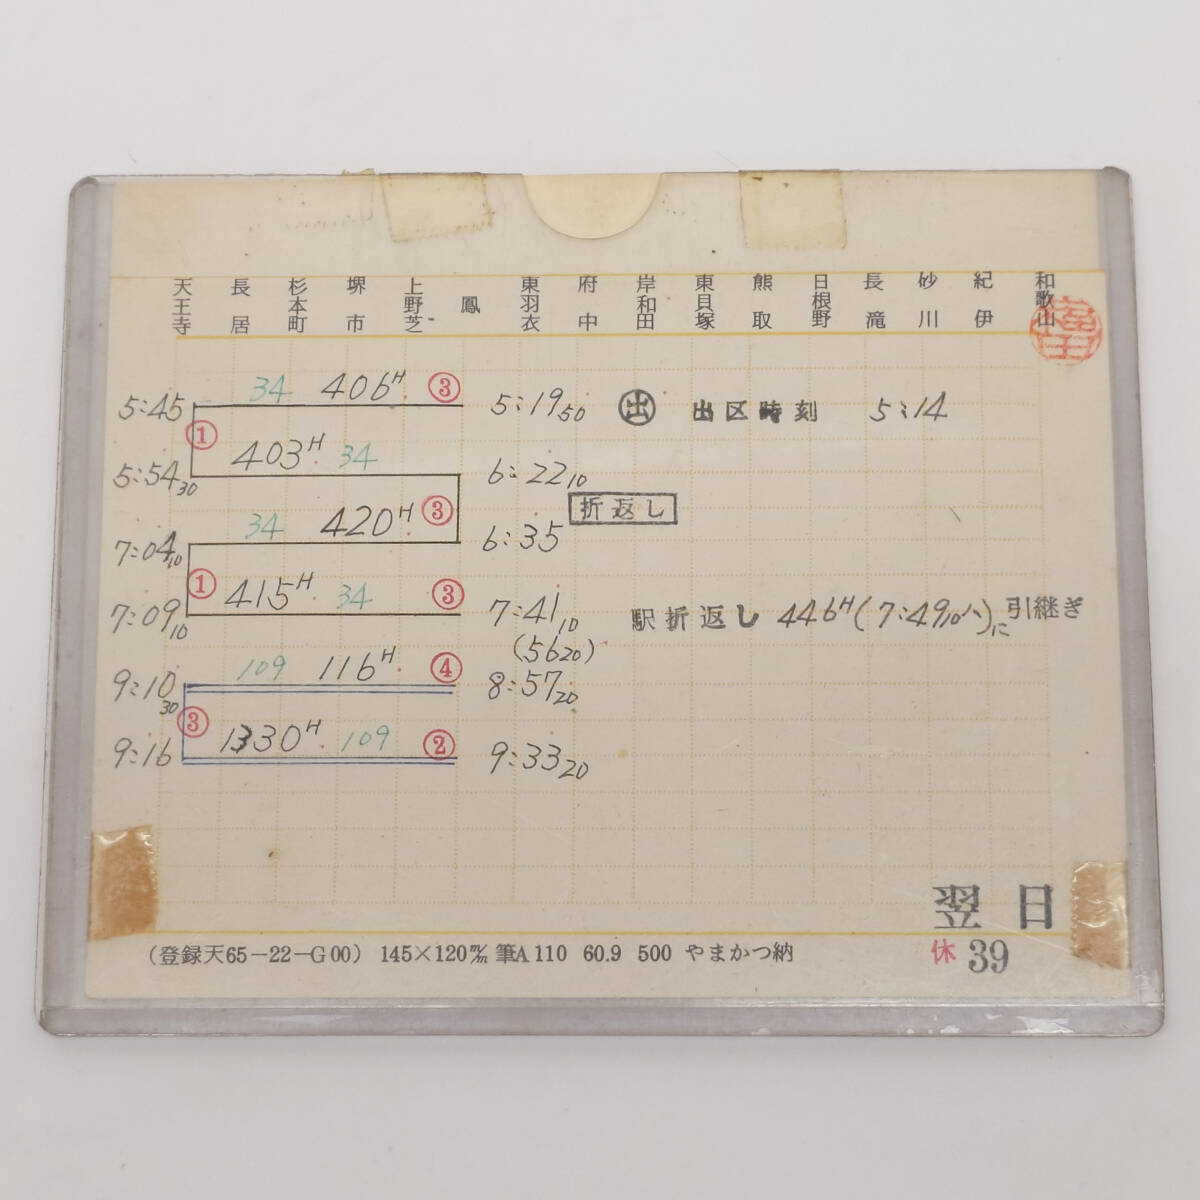 天王寺 長居 杉本町 堺市 上野芝 鳳 東羽衣 府中 岸和田 東貝塚 熊取 日根野 長滝 砂川 紀伊 和歌山
34 406H ③
5:45 5:19 50 出 出区時刻 5:14
①
403H 34
5:54 30 6:22 10
折返し
34 420H ③
7:04 10 6:35
① 415H 34 ③
7:09 10 7:41 10 駅折返し 446H(7:49 10ハ)に引継ぎ
(56 20)
109 116H ④
9:10 30 8:57 20
③ 1330H 109 ②
9:16 9:33 20
翌日
(登録天65-22-G00) 145×120m/m 筆A110 60.9 500 やまかつ納 休 39